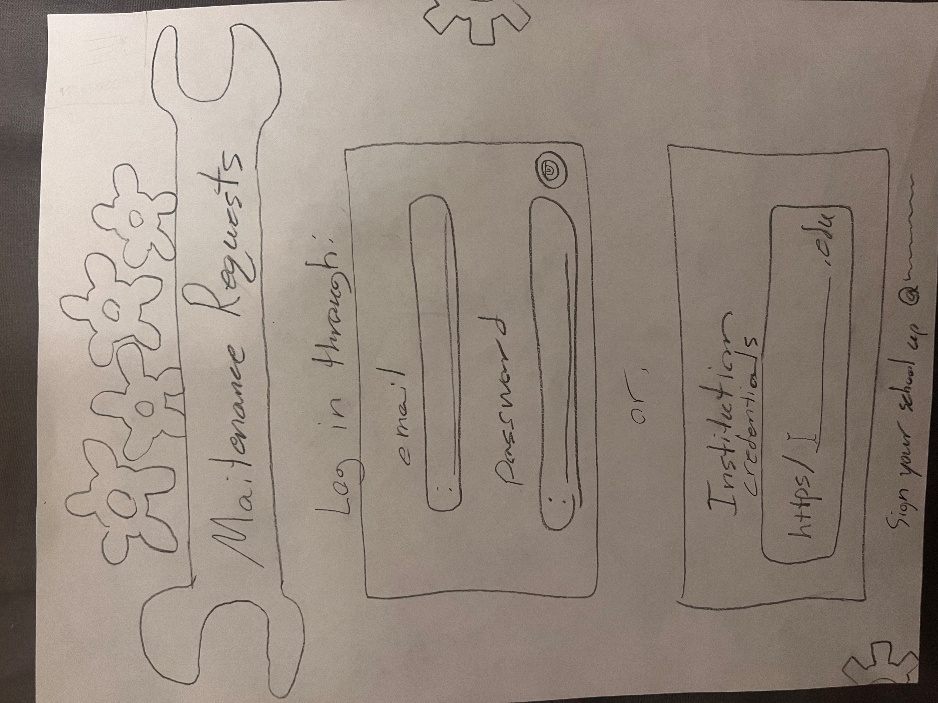 Maitenance Requests
Log in through:
email
:
Password
:
or,
Institution
credentials
https/_______.edu
Sign your school up @